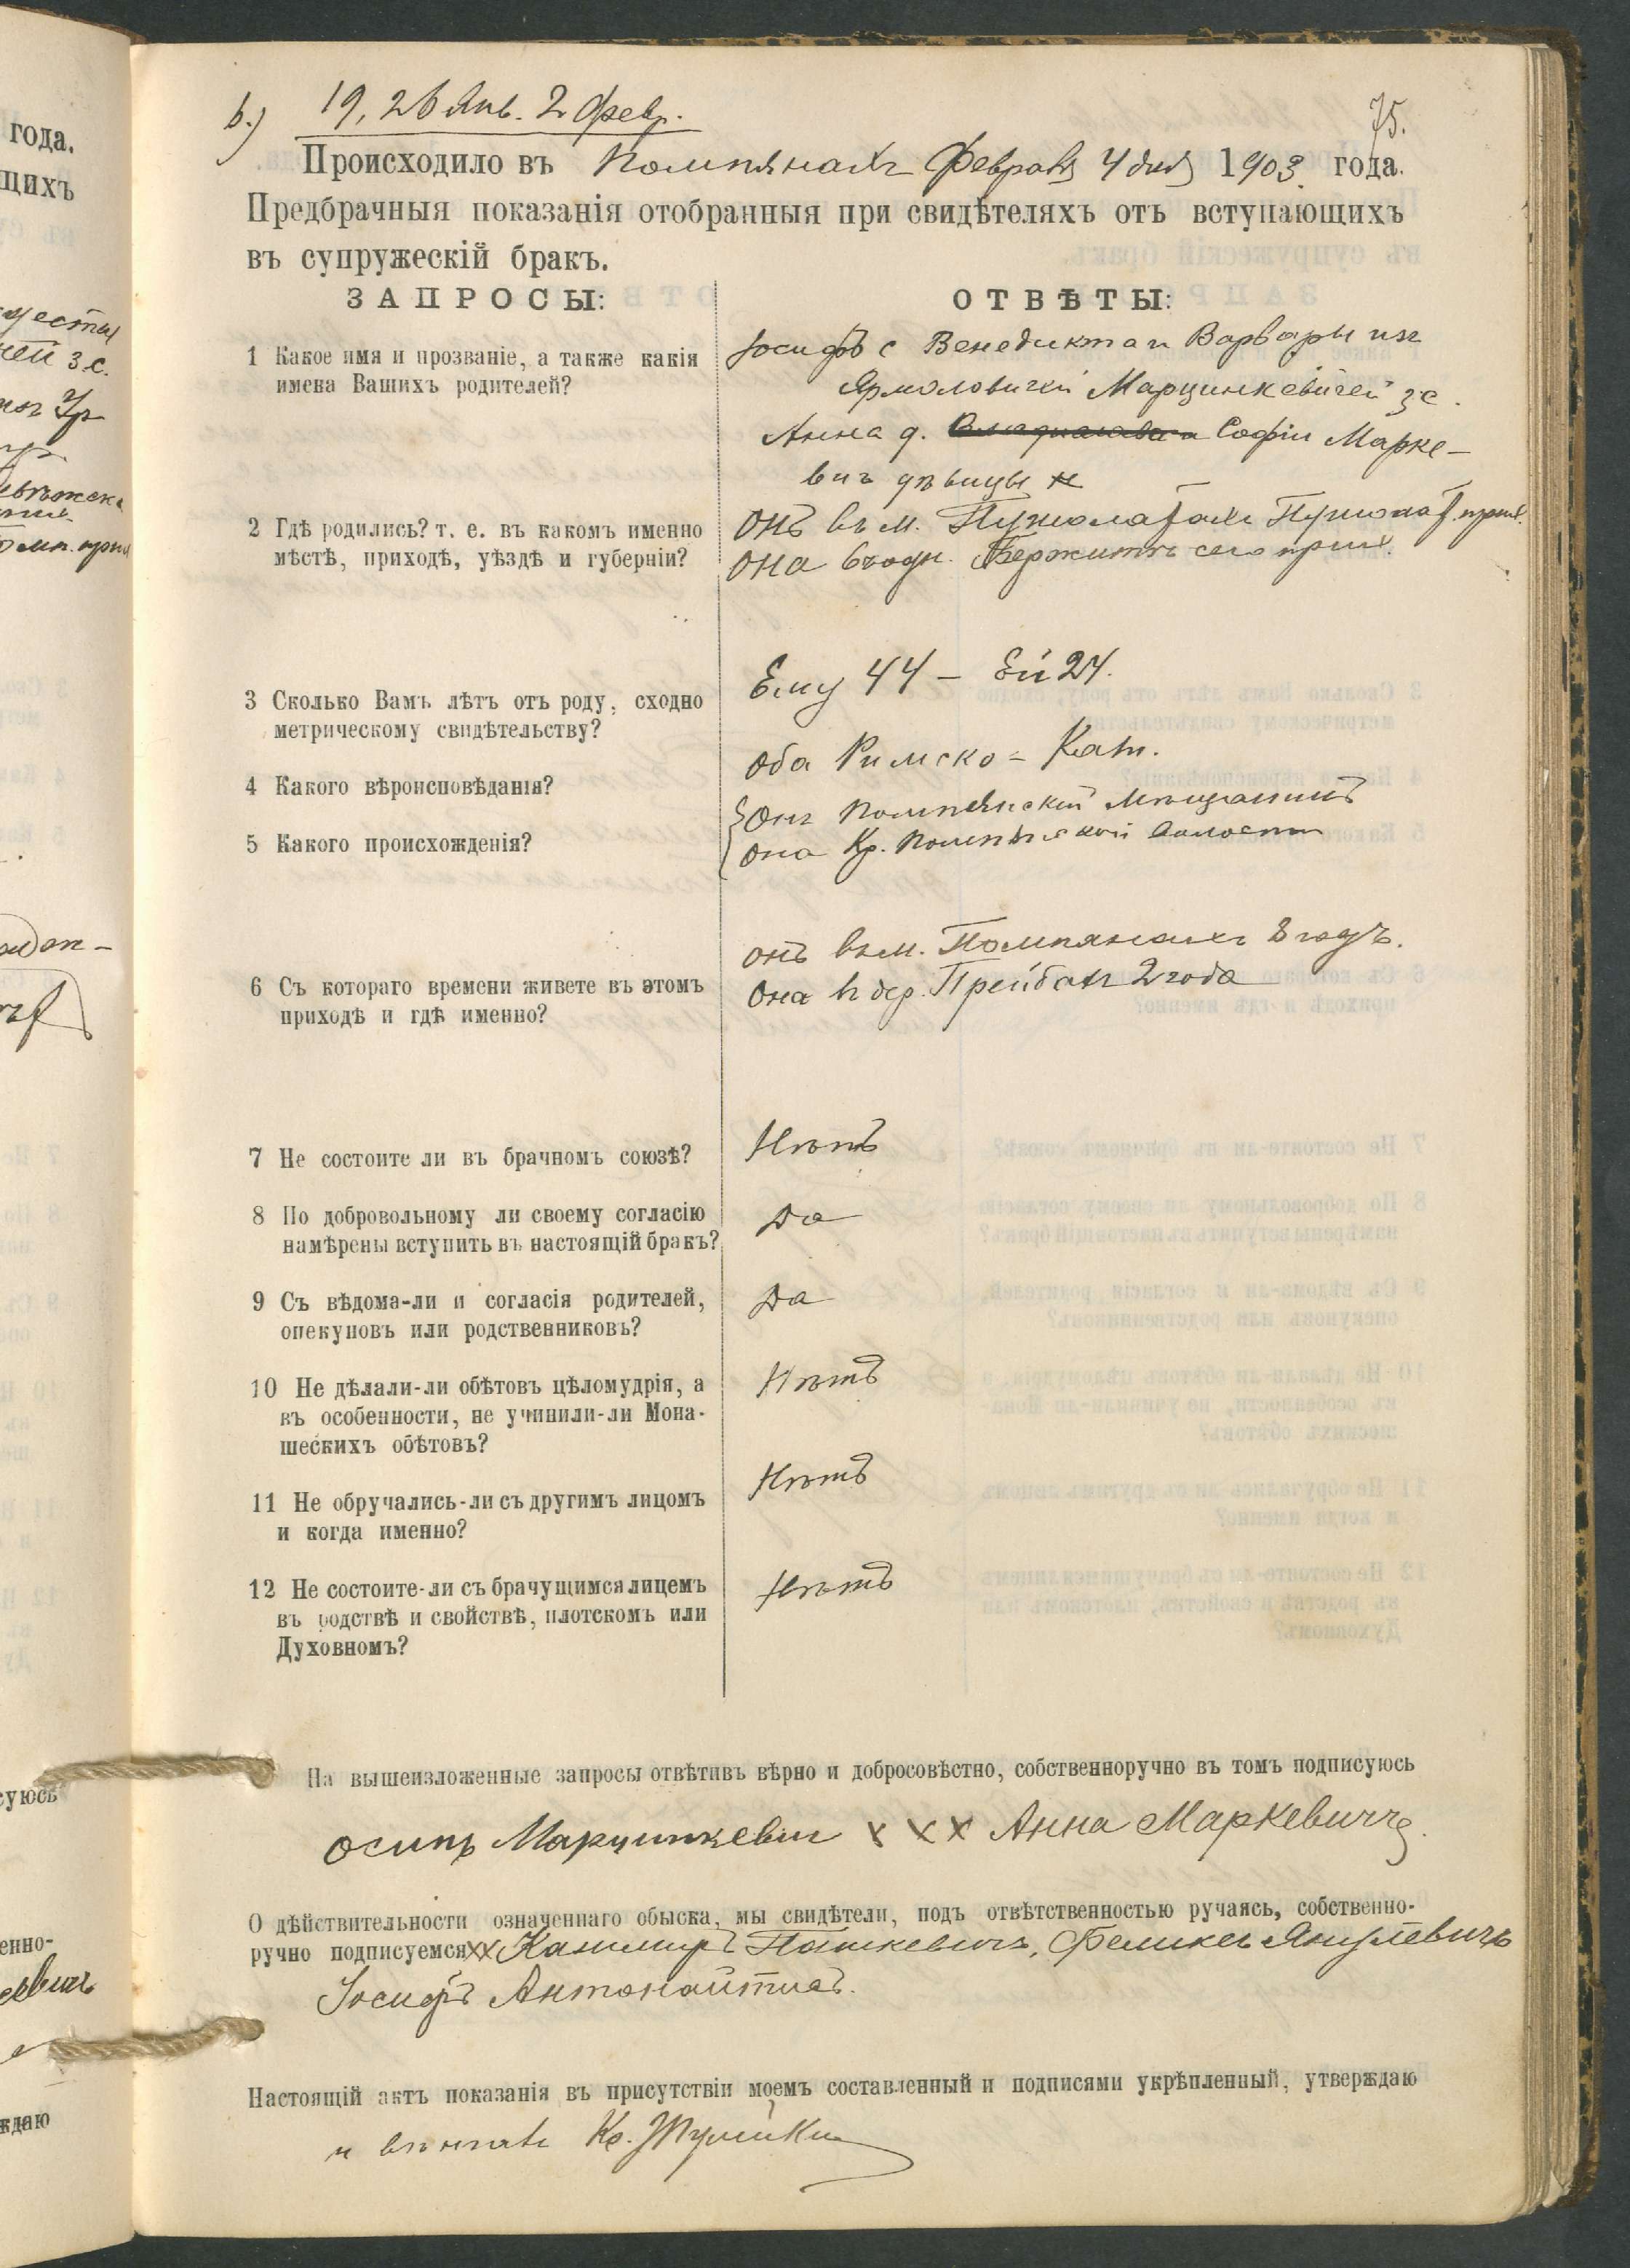 года.
щихъ
b.) 19, 26 Янв. 2 Февр.
75.
Происходило въ Помпянахъ Февраля 4 дня 1903. года.
Предбрачныя показанія отобранныя при свидѣтеляхъ отъ вступающихъ
въ супружескій бракъ.
ЗАПРОСЫ:
ОТВѢТЫ:
1 Какое имя и прозваніе, а также какія
имена Вашихъ родителей?
Іосифъ с Венедикта и Варвары изъ
Ярмоловичей Марцинкевичей зс.
Анна д. Софіи Марке-
вичъ дѣвицы
2 Гдѣ родились? т. е. въ какомъ именно
мѣстѣ, приходѣ, уѣздѣ и губерніи?
Онъ въ м. прих.
Она сего прих.
3 Сколько Вамъ лѣтъ отъ роду, сходно
метрическому свидѣтельству?
Ему 44 – Ей 24.
4 Какого вѣроисповѣданія?
Оба Римско = Кат.
5 Какого происхожденія?
Онъ Помпянскій Мѣщанинъ
Она Кр. Помпянской Волости
6 Съ котораго времени живете въ этомъ
приходѣ и гдѣ именно?
Онъ въ м. Помпянахъ годъ.
Она въ дер. 2 года
7 Не состоите ли въ брачномъ союзѣ?
Нѣтъ
8 По добровольному ли своему согласію
намѣрены вступить въ настоящій бракъ?
Да
9 Съ вѣдома-ли и согласія родителей,
опекуновъ или родственниковъ?
Да
10 Не дѣлали-ли обѣтовъ цѣломудрія, а
въ особенности, не учинили-ли Мона-
шескихъ обѣтовъ?
Нѣтъ
11 Не обручались-ли съ другимъ лицомъ
и когда именно?
Нѣтъ
12 Не состоите-ли съ брачущимся лицемъ
въ родствѣ и свойствѣ, плотскомъ или
Духовномъ?
Нѣтъ
На вышеизложенные запросы отвѣтивъ вѣрно и добросовѣстно, собственноручно въ томъ подписуюсь
Осипъ Марцинкевич х х х Анна Маркевичъ
О дѣйствительности означеннаго обыска, мы свидѣтели, подъ отвѣтственностью ручаясь, собственно-
ручно подписуемся хх Казимиръ Пашкевичъ, Феликсъ Янулевичъ
Іосифъ Антонайтисъ.
Настоящій актъ показанія въ присутствіи моемъ составленный и подписями укрѣпленный, утверждаю
и Кс.